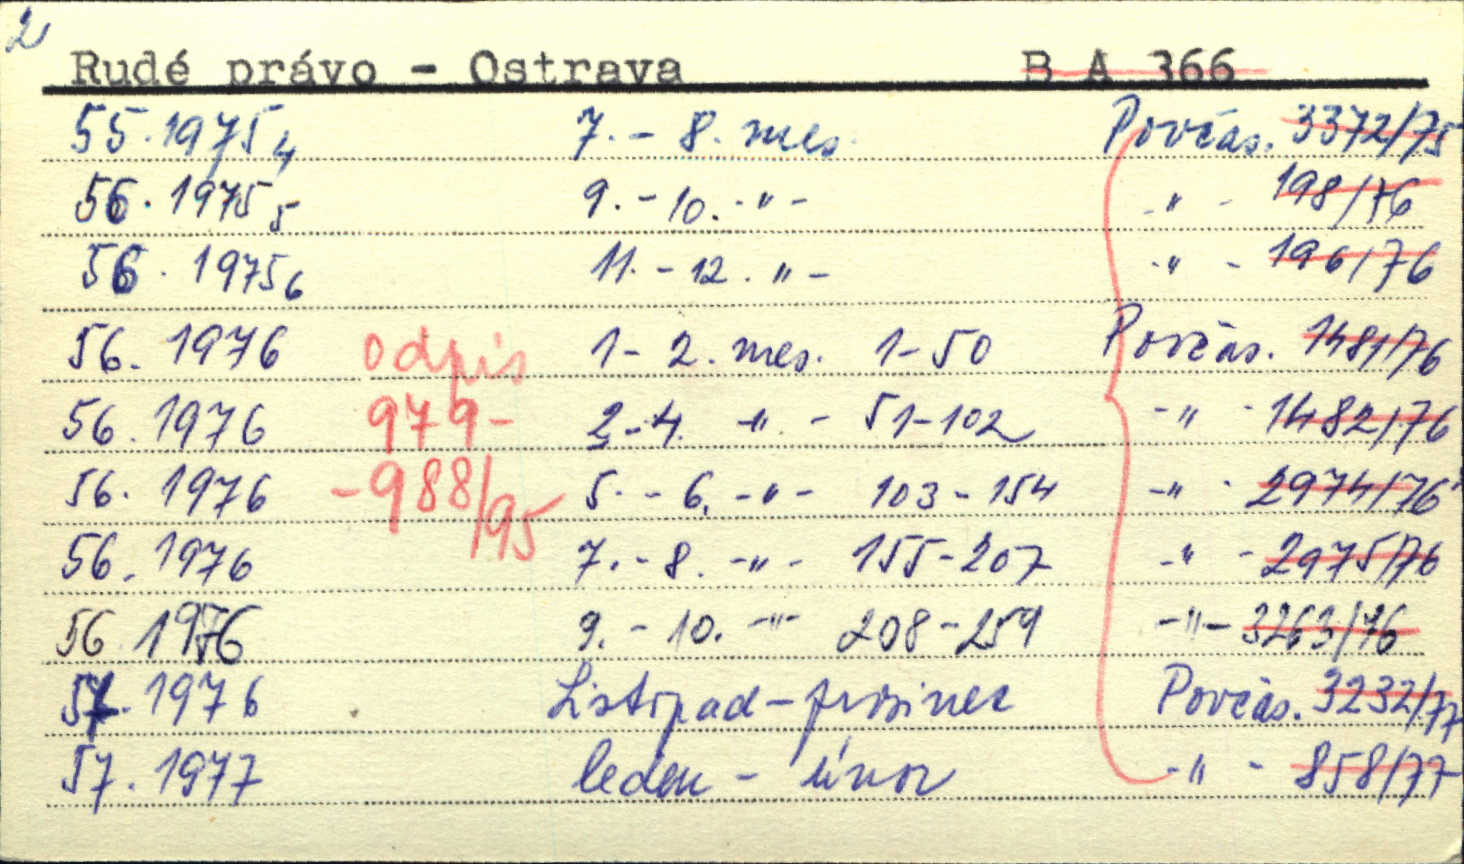 2
Rudé právo - Ostrava B A 366
55. 1975 4 7. - 8. mes. Povčas. 3372/75
56. 1975 5 9. - 10. - " - - " - 198/76
56. 1975 6 11. - 12. " - - " - 196/76
56. 1976 odpis 1 - 2. mes. 1-50 Povčas. 1481/76
56. 1976 979- 2-4. - " - 51-102 - " - 1482/76
56. 1976 -988/95 5. - 6. - " - 103-154 - " - 2974/76
56. 1976 7. - 8. - " - 155-207 - " - 2975/76
56. 1976 9. - 10. - " - 208-259 - " - 3263/76
57. 1976 Listopad - prosinec Povčas. 3232/77
57. 1977 leden - únor - " - 858/77